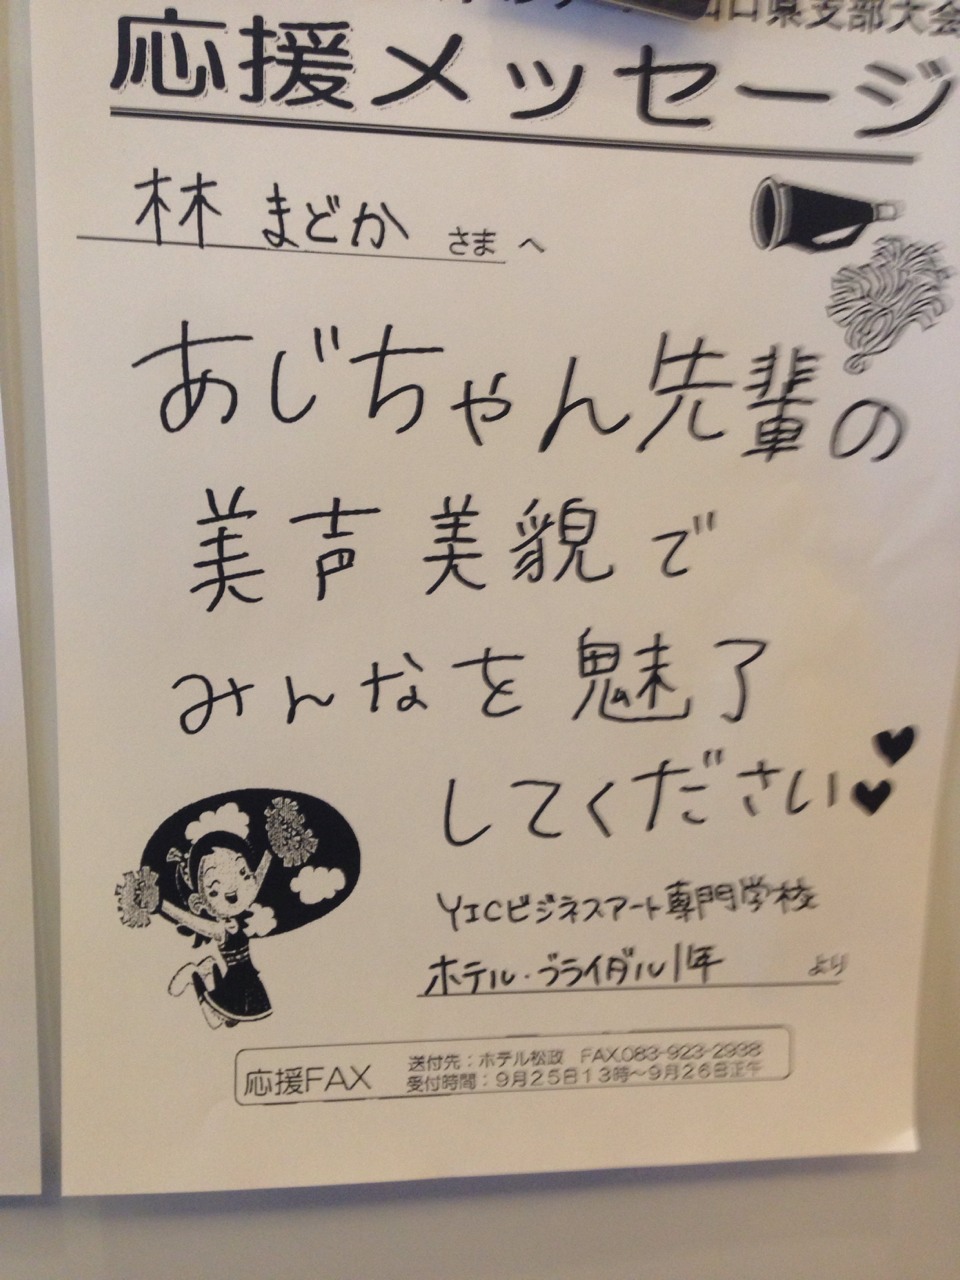 口県支部大会
応援メッセージ
林 まどか さま へ
あじちゃん先輩の
美声美貌で
みんなを魅了
してください♥♥
YICビジネスアート専門学校
ホテル・ブライダル1年 より
応援FAX
送付先：ホテル松政 FAX.083-923-2938
受付時間：9月25日13時〜9月26日正午